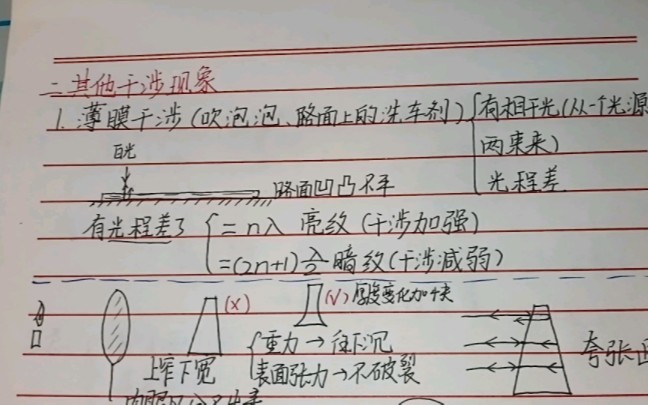 二、其他干涉现象
1. 薄膜干涉(吹泡泡、路面上的洗车剂) 有相干光(从一个光源
两束来)
光程差
白光
路面凹凸不平
有光程差了 =nλ 亮纹(干涉加强)
=(2n+1)λ/2 暗纹(干涉减弱)
(×) (√) 厚度变化加快
上窄下宽 重力→往下沉
表面张力→不破裂
夸张